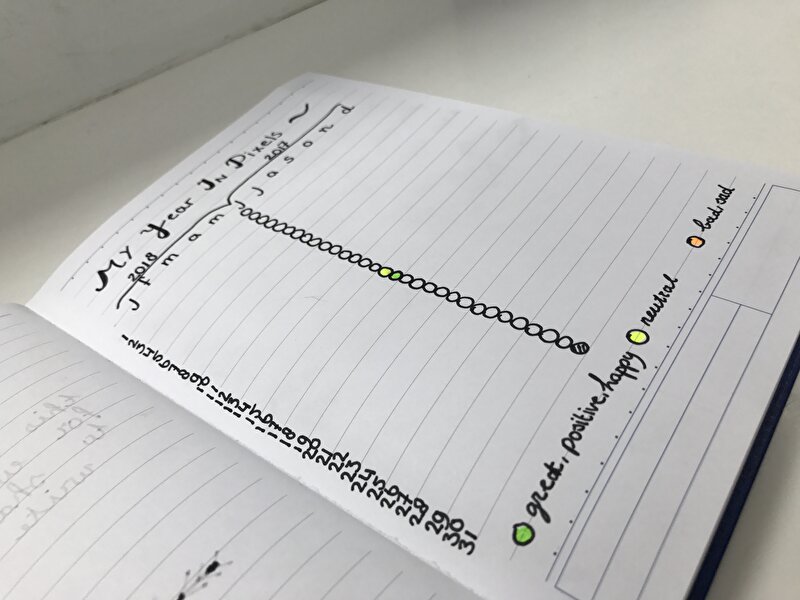 My Year In Pixels ~
2018 2017
J F m a m J J a s o n d
1
2
3
4
5
6
7
8
9
10
11
12
13
14
15
16
17
18
19
20
21
22
23
24
25
26
27
28
29
30
31
great, positive, happy
neutral
bad, sad